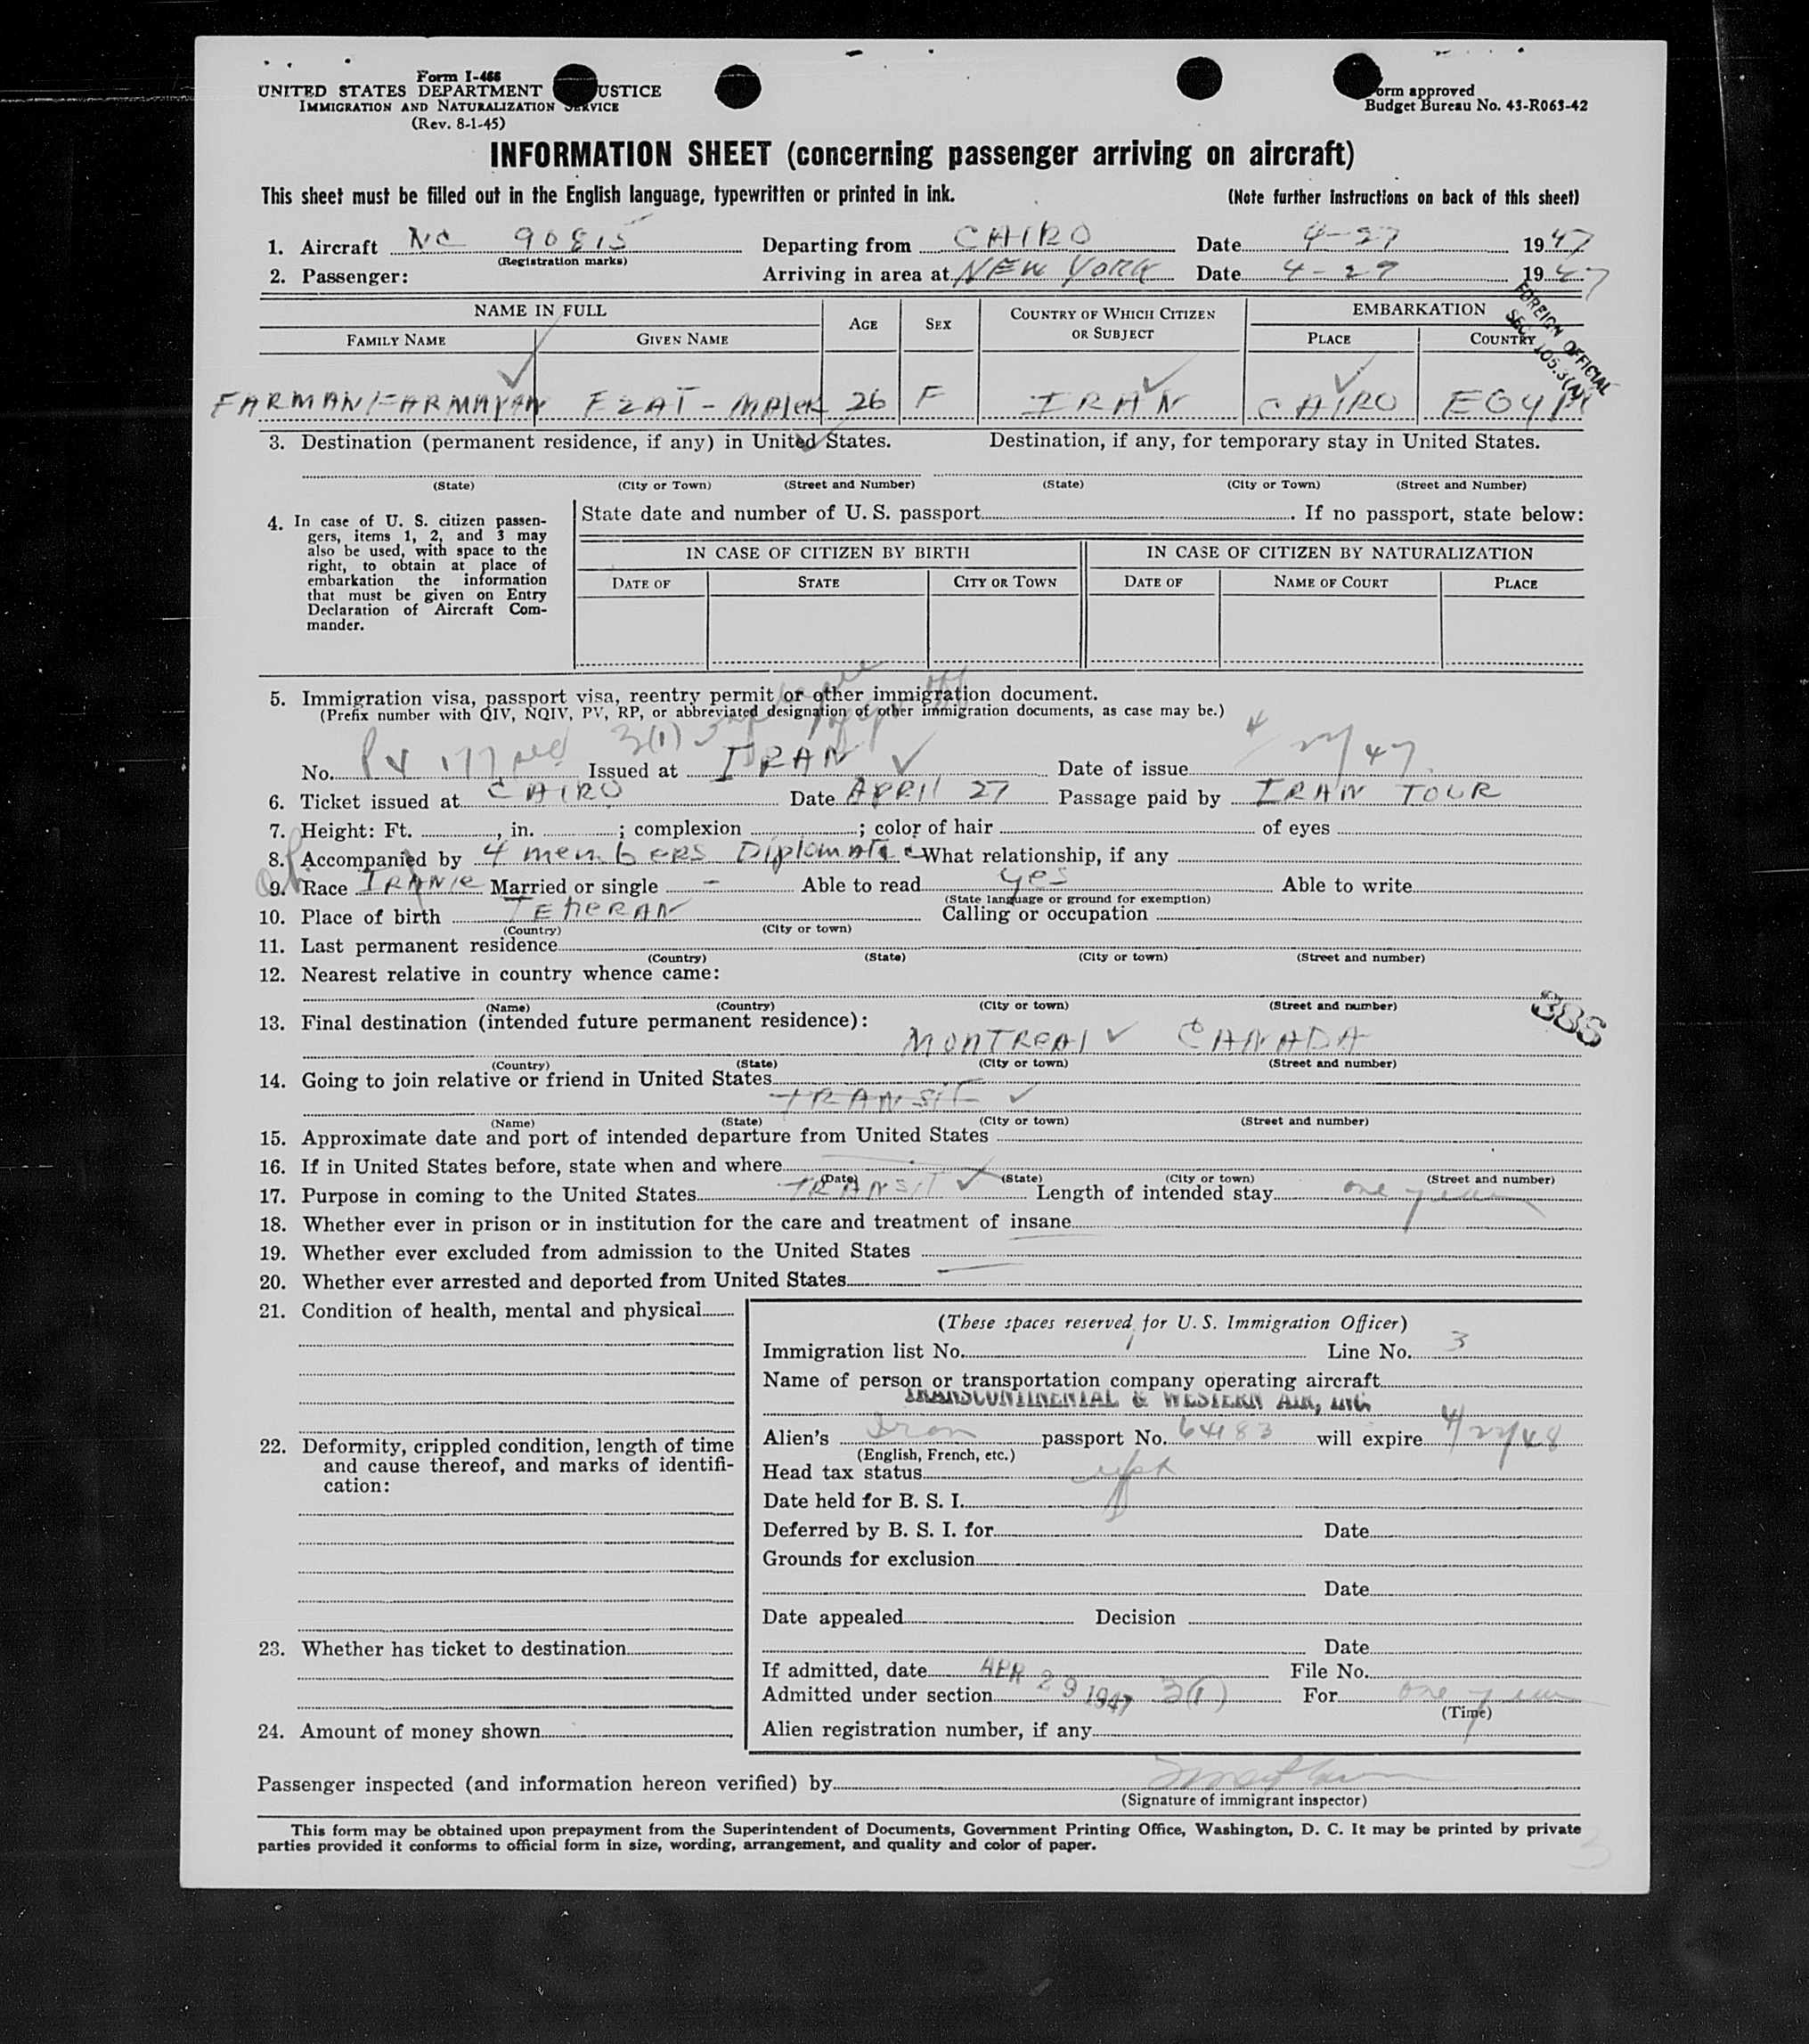 Form I-466
UNITED STATES DEPARTMENT USTICE
IMMIGRATION AND NATURALIZATION SERVICE
(Rev. 8-1-45)
orm approved
Budget Bureau No. 43-R063-42
INFORMATION SHEET (concerning passenger arriving on aircraft)
This sheet must be filled out in the English language, typewritten or printed in ink. (Note further instructions on back of this sheet)
1. Aircraft NC 90815 Departing from CAIRO Date 4-27 1947
(Registration marks)
2. Passenger: Arriving in area at NEW YORK Date 4-29 1947
FOREIGN OFFICIAL
SEC. 105.3(A)
NAME IN FULL AGE SEX COUNTRY OF WHICH CITIZEN OR SUBJECT EMBARKATION
FAMILY NAME GIVEN NAME PLACE COUNTRY
FARMANFARMAYAN EZAT-MALEK 26 F IRAN CAIRO EGYPT
3. Destination (permanent residence, if any) in United States. Destination, if any, for temporary stay in United States.
(State) (City or Town) (Street and Number) (State) (City or Town) (Street and Number)
4. In case of U. S. citizen passen-
gers, items 1, 2, and 3 may
also be used, with space to the
right, to obtain at place of
embarkation the information
that must be given on Entry
Declaration of Aircraft Com-
mander.
State date and number of U. S. passport. If no passport, state below:
IN CASE OF CITIZEN BY BIRTH IN CASE OF CITIZEN BY NATURALIZATION
DATE OF STATE CITY OR TOWN DATE OF NAME OF COURT PLACE
5. Immigration visa, passport visa, reentry permit or other immigration document.
(Prefix number with QIV, NQIV, PV, RP, or abbreviated designation of other immigration documents, as case may be.)
3(1)
No. PV 177 Issued at IRAN Date of issue 4/22/47
6. Ticket issued at CAIRO Date APRIL 27 Passage paid by IRAN TOUR
7. Height: Ft. , in. ; complexion ; color of hair of eyes
8. Accompanied by 4 members Diplomatic What relationship, if any
9. Race IRANIE Married or single - Able to read yes Able to write
(State language or ground for exemption)
10. Place of birth TEHERAN Calling or occupation
(Country) (City or town)
11. Last permanent residence
(Country) (State) (City or town) (Street and number)
12. Nearest relative in country whence came:
(Name) (Country) (City or town) (Street and number)
386
13. Final destination (intended future permanent residence):
MONTREAL CANADA
(Country) (State) (City or town) (Street and number)
14. Going to join relative or friend in United States
TRANSIT
(Name) (State) (City or town) (Street and number)
15. Approximate date and port of intended departure from United States
16. If in United States before, state when and where
(Date) (State) (City or town) (Street and number)
17. Purpose in coming to the United States TRANSIT Length of intended stay one year
18. Whether ever in prison or in institution for the care and treatment of insane
19. Whether ever excluded from admission to the United States
20. Whether ever arrested and deported from United States
21. Condition of health, mental and physical
22. Deformity, crippled condition, length of time
and cause thereof, and marks of identifi-
cation:
23. Whether has ticket to destination
24. Amount of money shown
(These spaces reserved for U. S. Immigration Officer)
Immigration list No. 1 Line No. 3
Name of person or transportation company operating aircraft
TRANSCONTINENTAL & WESTERN AIR, INC.
Alien's Iran passport No. 64183 will expire 4/22/48
(English, French, etc.)
Head tax status
Date held for B. S. I.
Deferred by B. S. I. for Date
Grounds for exclusion
Date
Date appealed Decision
Date
If admitted, date APR 29 1947 File No.
Admitted under section 3(1) For one year
(Time)
Alien registration number, if any
Passenger inspected (and information hereon verified) by
(Signature of immigrant inspector)
This form may be obtained upon prepayment from the Superintendent of Documents, Government Printing Office, Washington, D. C. It may be printed by private
parties provided it conforms to official form in size, wording, arrangement, and quality and color of paper.
3